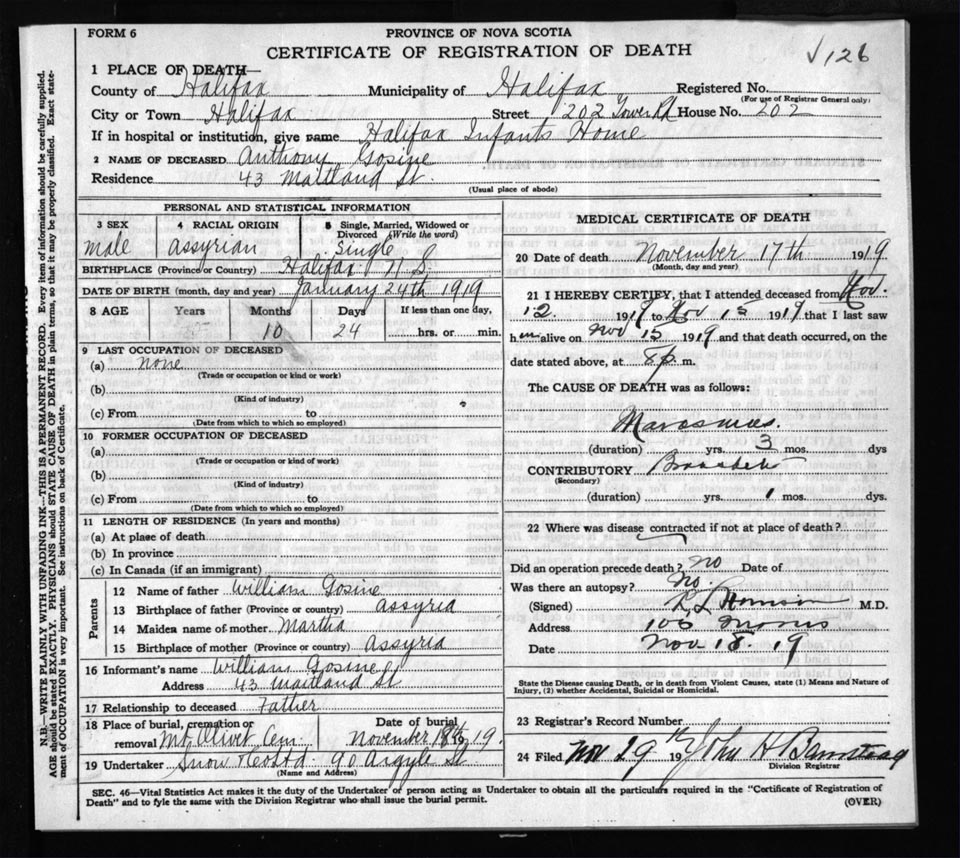 FORM 6
PROVINCE OF NOVA SCOTIA
CERTIFICATE OF REGISTRATION OF DEATH
126
1 PLACE OF DEATH—
County of Halifax Municipality of Halifax Registered No.
(For use of Registrar General only)
City or Town Halifax Street 202 Tower Rd House No. 202
If in hospital or institution, give name Halifax Infants Home
2 NAME OF DECEASED Anthony Gosine
Residence 43 Maitland St.
(Usual place of abode)
PERSONAL AND STATISTICAL INFORMATION
3 SEX 4 RACIAL ORIGIN 5 Single, Married, Widowed or Divorced (Write the word)
male assyrian Single
BIRTHPLACE (Province or Country) Halifax N S.
DATE OF BIRTH (month, day and year) January 24th 1919
8 AGE Years Months Days If less than one day,
10 24 hrs. or min.
9 LAST OCCUPATION OF DECEASED
(a) None
(Trade or occupation or kind or work)
(b)
(Kind of industry)
(c) From to
(Date from which to which so employed)
10 FORMER OCCUPATION OF DECEASED
(a)
(Trade or occupation or kind of work)
(b)
(Kind of industry)
(c) From to
(Date from which to which so employed)
11 LENGTH OF RESIDENCE (In years and months)
(a) At place of death
(b) In province
(c) In Canada (if an immigrant)
Parents
12 Name of father William Gosine
13 Birthplace of father (Province or country) Assyria
14 Maiden name of mother Martha
15 Birthplace of mother (Province or country) Assyria
16 Informant's name William Gosine
Address 43 Maitland St
17 Relationship to deceased Father
18 Place of burial, cremation or removal Mt Olivet Cem. Date of burial November 18th 1919.
19 Undertaker Snow & Co Ltd. 90 Argyle St
(Name and Address)
MEDICAL CERTIFICATE OF DEATH
20 Date of death November 17th 1919
(Month, day and year)
21 I HEREBY CERTIFY, that I attended deceased from Nov.
12 1919 to Nov 15 1919 that I last saw
him alive on Nov 15 1919 and that death occurred, on the
date stated above, at 8 p m.
The CAUSE OF DEATH was as follows:
Marasmus.
(duration) yrs. 3 mos. dys
CONTRIBUTORY
(Secondary)
(duration) yrs. 1 mos. dys.
22 Where was disease contracted if not at place of death?
Did an operation precede death? No Date of
Was there an autopsy? No.
(Signed) M.D.
Address 106 Morris
Date Nov 18. 19
State the Disease causing Death, or in death from Violent Causes, state (1) Means and Nature of
Injury, (2) whether Accidental, Suicidal or Homicidal.
23 Registrar's Record Number
24 Filed Nov 29th 19 John H Barnstead
Division Registrar
SEC. 46—Vital Statistics Act makes it the duty of the Undertaker or person acting as Undertaker to obtain all the particulars required in the "Certificate of Registration of
Death" and to fyle the same with the Division Registrar who shall issue the burial permit.
(OVER)
N.B.—WRITE PLAINLY WITH UNFADING INK—THIS IS A PERMANENT RECORD. Every item of information should be carefully supplied.
AGE should be stated EXACTLY. PHYSICIANS should STATE CAUSE OF DEATH in plain terms, so that it may be properly classified. Exact state-
ment of OCCUPATION is very important. See instructions on back of Certificate.